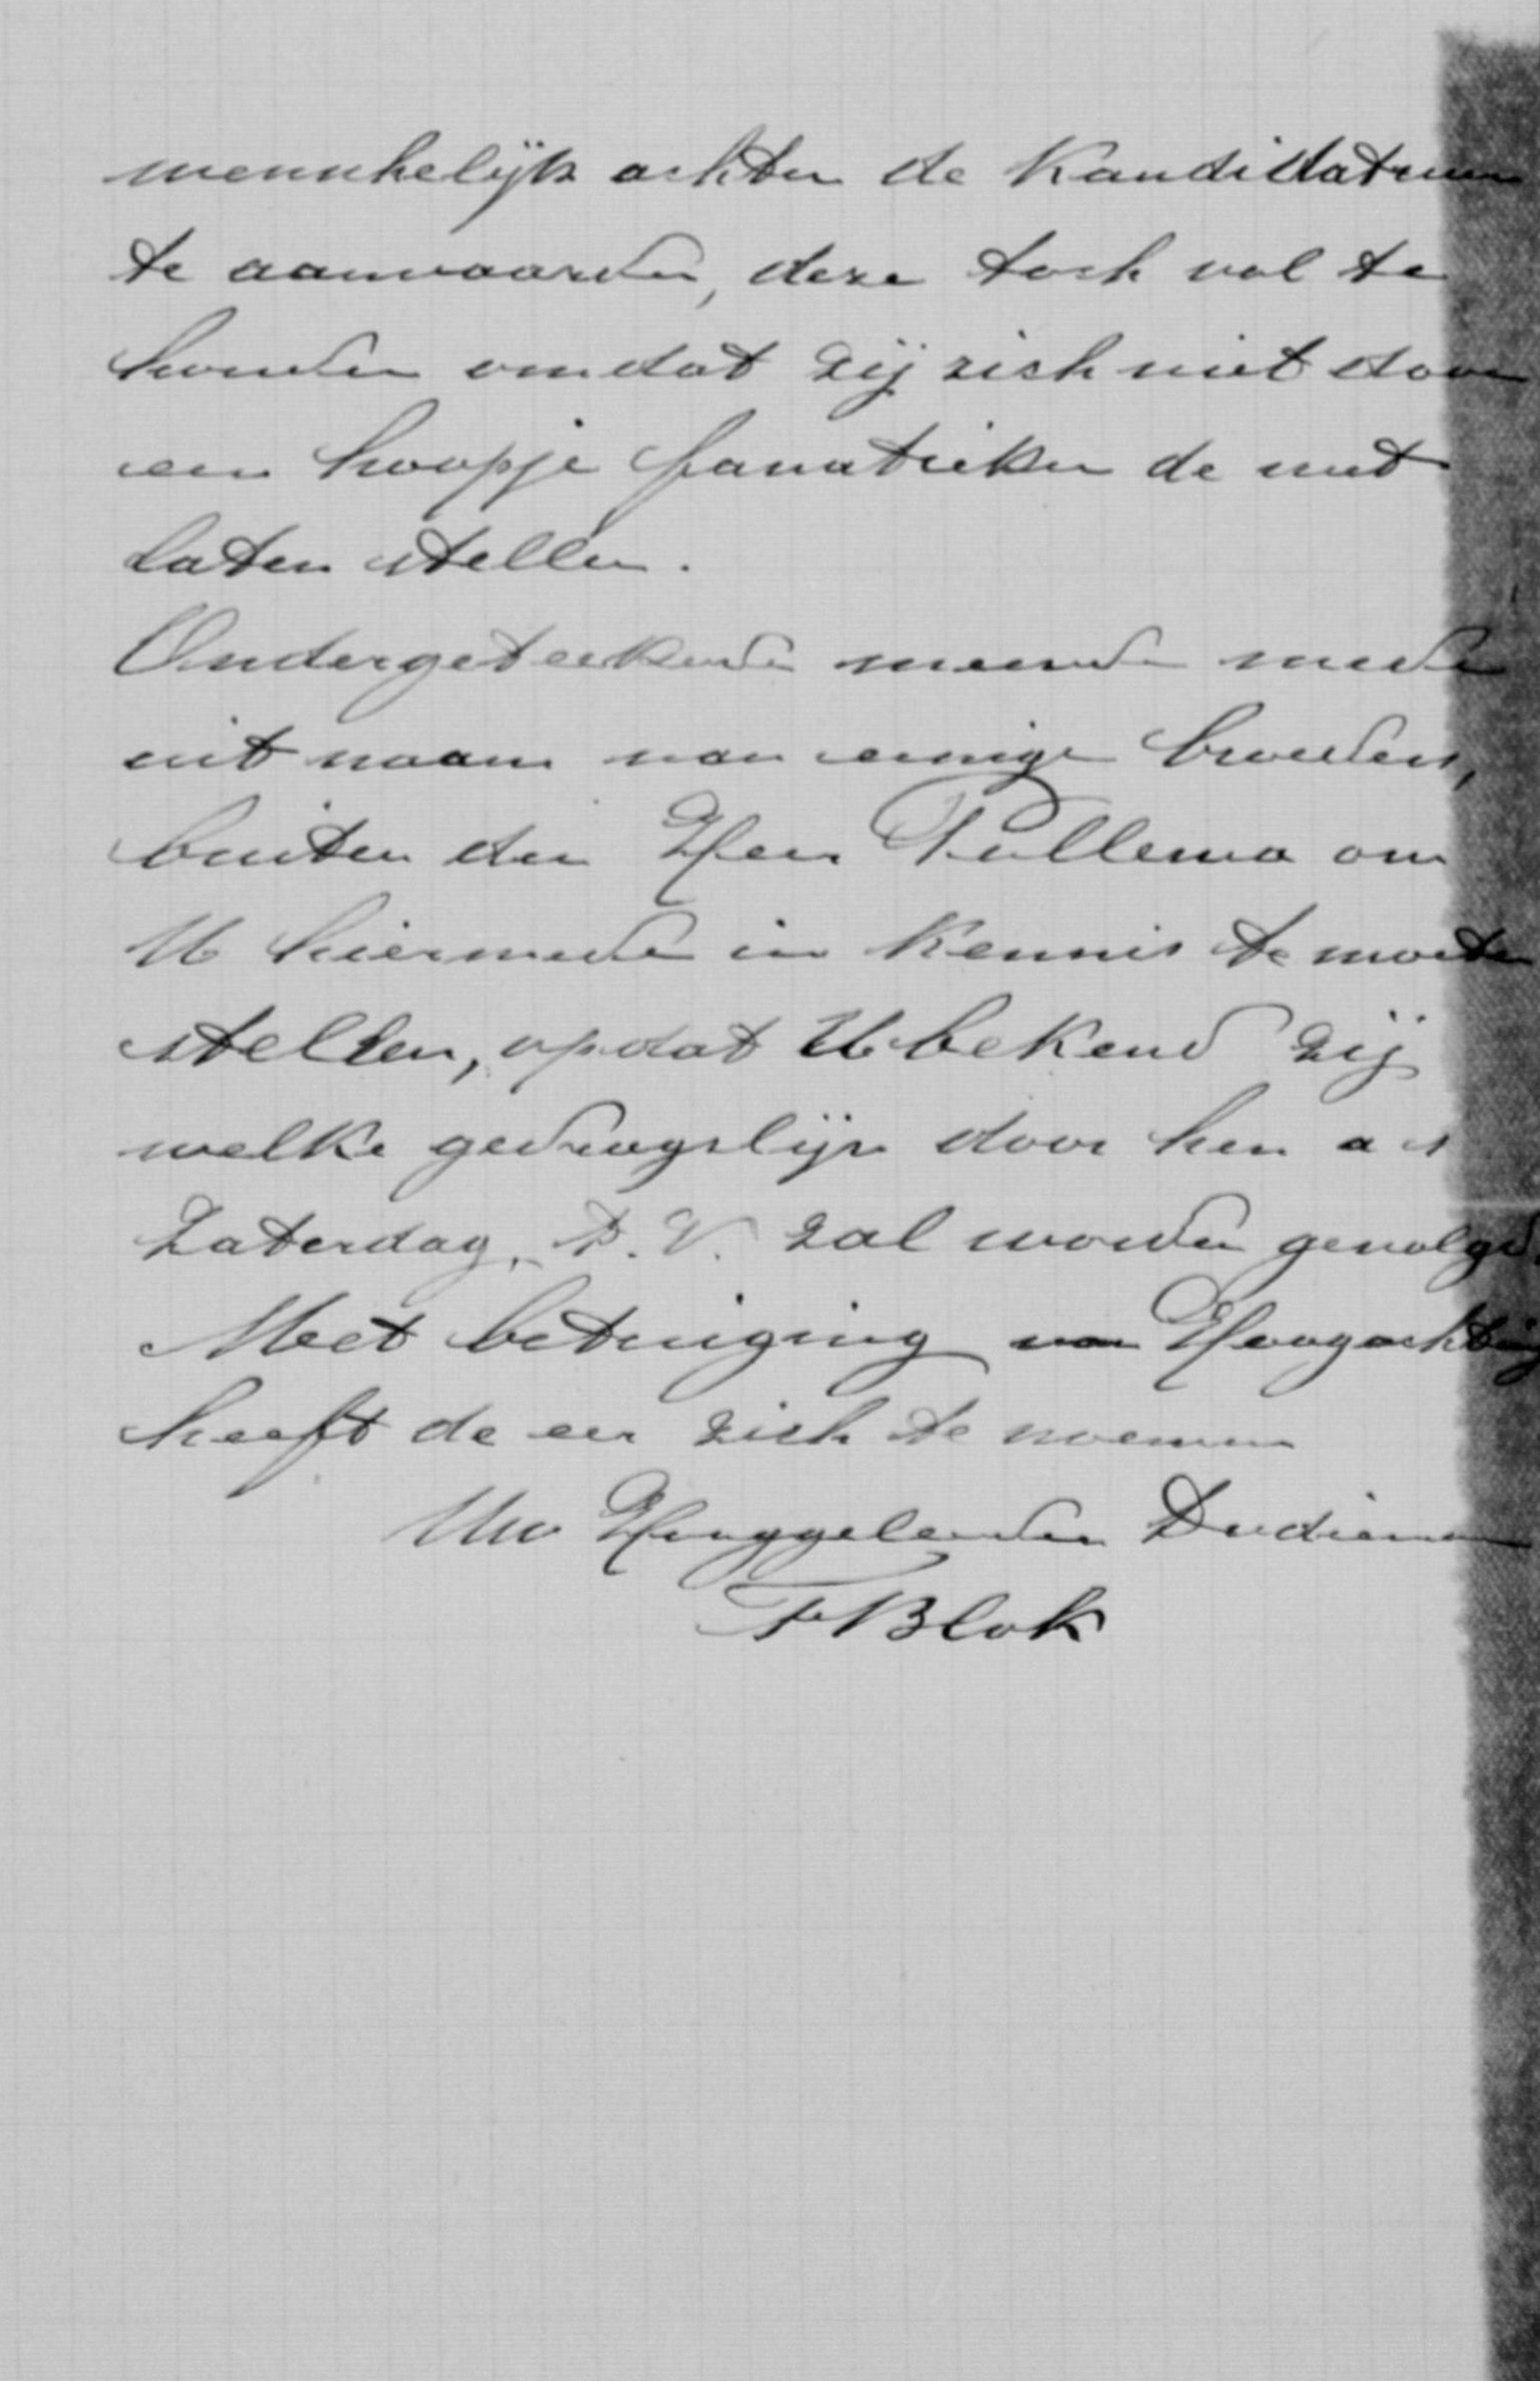 menschelijk achten de Kandidatuur
te aanvaarden, deze toch vol te
houden omdat zij zich niet door
een hoopje fanatieken de wet
laten stellen.
Ondergeteekende meende mede
uit naam van eenige broeders,
buiten den Heer Pollema om
U hiermede in Kennis te moeten
stellen, opdat U bekend zij
welke gedragslijn door hen a s
Zaterdag, D. V. zal worden gevolgd.
Met betuiging van Hoogachting
heeft de eer zich te noemen
Uw Hooggel. Dv. dienaar
F Blok